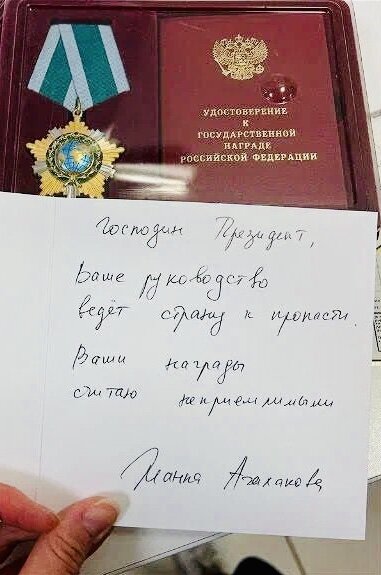 УДОСТОВЕРЕНИЕ
К
ГОСУДАРСТВЕННОЙ
НАГРАДЕ
РОССИЙСКОЙ ФЕДЕРАЦИИ
Господин Президент,
Ваше руководство
ведёт страну к пропасти.
Ваши награды
считаю неприемлимыми
Жанна Агалакова